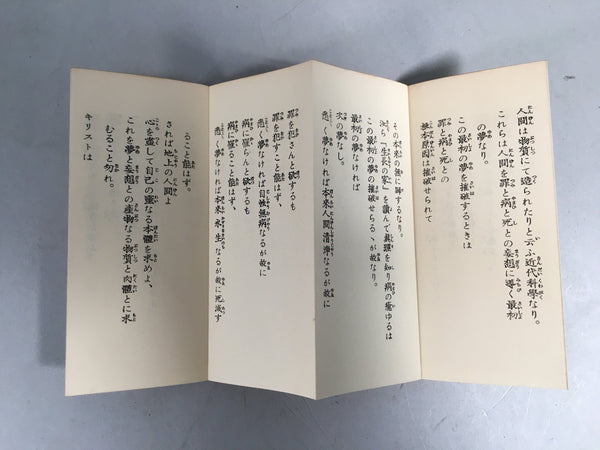 人間は物質にて造られたりと云ふ近代科學なり。
これらは人間を罪と病と死との妄想に導く最初
の夢なり。
この最初の夢を摧破するときは
罪と病と死との
根本原因は摧破せられて
その本来の無に歸するなり。
汝ら『生長の家』を讀んで眞理を知り病の癒ゆるは
この最初の夢の摧破せらるゝが故なり。
最初の夢なければ
次の夢なし。
悉く夢なければ本来人間清淨なるが故に
罪を犯さんと欲するも
罪を犯すこと能はず、
悉く夢なければ自性無病なるが故に
病に罹らんと欲するも
病に罹ること能はず、
悉く夢なければ本来永生なるが故に死滅す
ること能はず。
されば地上の人間よ
心を盡して自己の靈なる本體を求めよ、
これを夢と妄想との産物なる物質と肉體とに求
むること勿れ。
キリストは